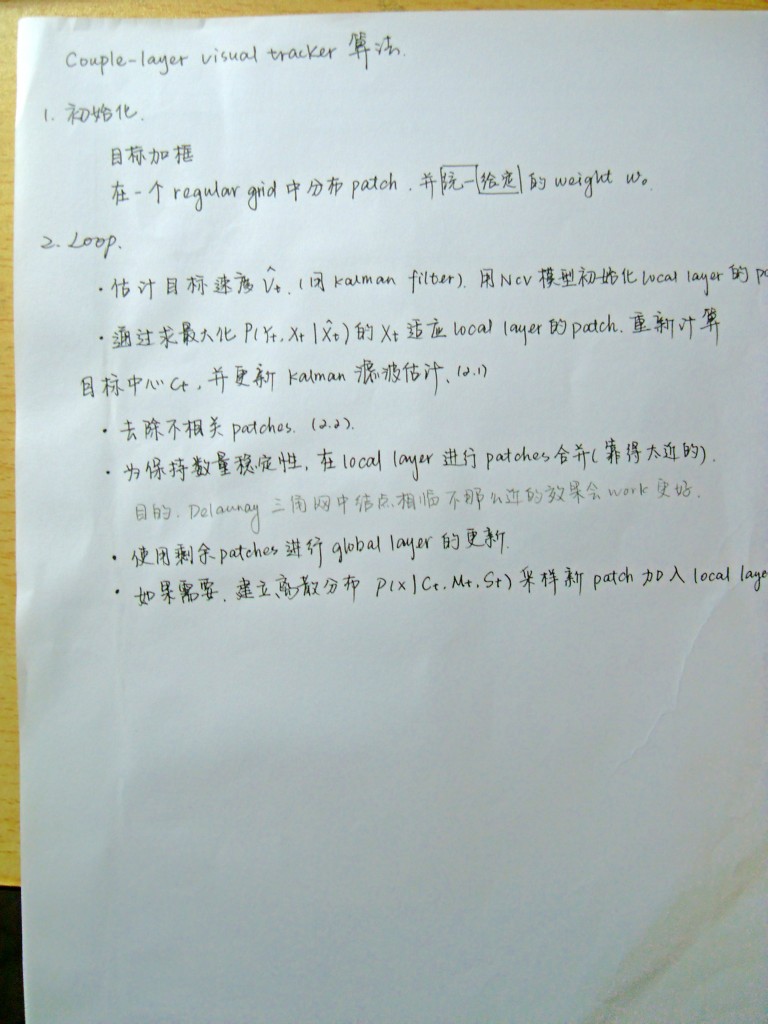 Couple-layer visual tracker 算法.
1. 初始化.
目标加框
在一个 regular grid 中分布 patch. 并统一给定的 weight w₀.
2. Loop.
· 估计目标速度 V̂t. (用 Kalman filter). 用 NCV 模型初始化 local layer 的 pa
· 通过求最大化 P(Yt, Xt | X̂t) 的 Xt 适应 local layer 的 patch. 重新计算
目标中心 Ct, 并更新 Kalman 滤波估计. (2.1)
· 去除不相关 patches. (2.2).
· 为保持数量稳定性, 在 local layer 进行 patches 合并 (靠得太近的).
目的. Delaunay 三角网中结点相临不那么近的效果会 work 更好.
· 使用剩余 patches 进行 global layer 的更新.
· 如果需要. 建立离散分布 P(x | Ct, Mt, St) 采样新 patch 加入 local laye